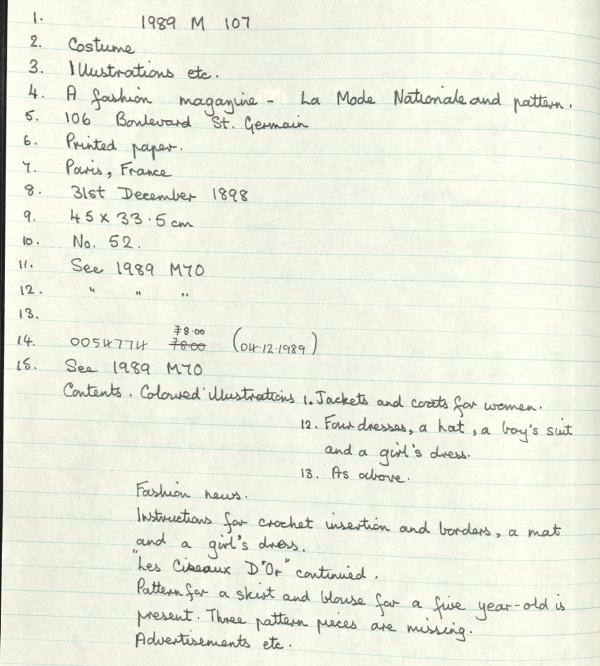 1. 1989 M 107
2. Costume
3. Illustrations etc.
4. A fashion magazine - La Mode Nationale and pattern.
5. 106 Boulevard St. Germain
6. Printed paper.
7. Paris, France
8. 31st December 1898
9. 45 x 33.5 cm
10. No. 52.
11. See 1989 M70
12. " " "
13.
78.00
14. 0054774 78.00 (04.12.1989)
15. See 1989 M70
Contents. Coloured illustrations 1. Jackets and coats for women.
12. Four dresses, a hat, a boy's suit
and a girl's dress.
13. As above.
Fashion news.
Instructions for crochet insertion and borders, a mat
and a girl's dress.
"Les Ciseaux D'Or" continued.
Pattern for a skirt and blouse for a five year-old is
present. Three pattern pieces are missing.
Advertisements etc.